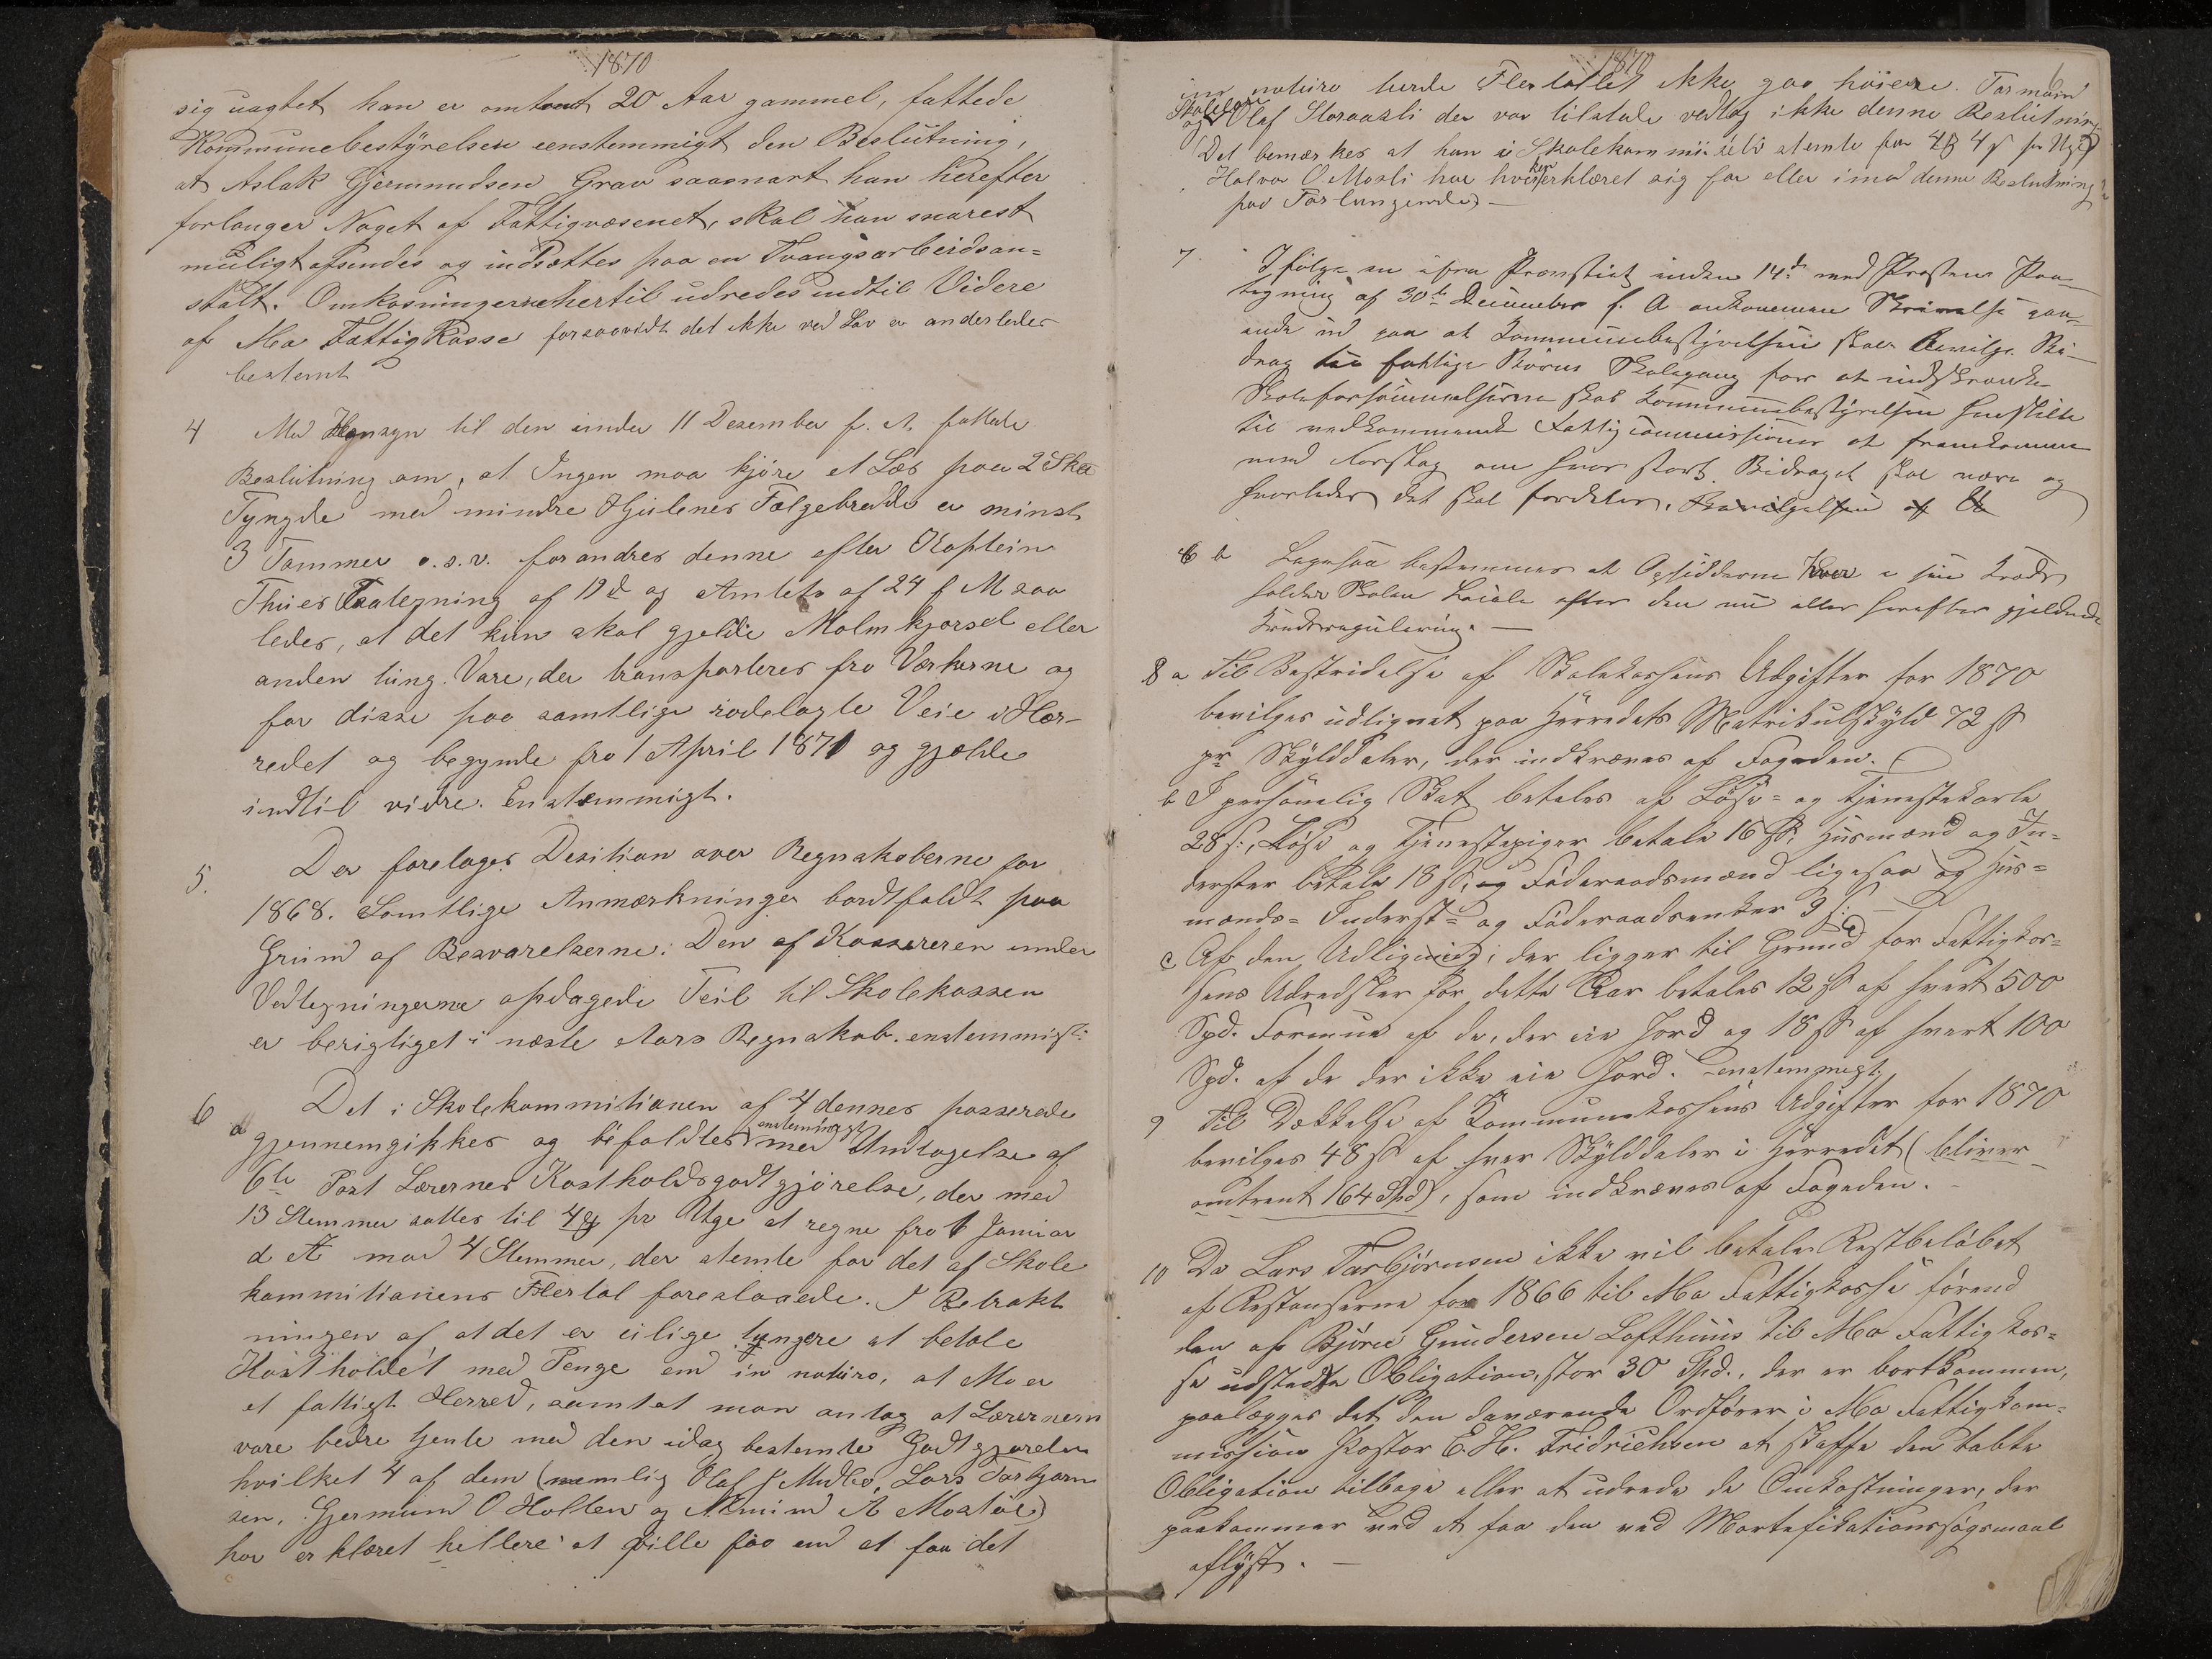 1870
sig uagtet han er omtrent 20 Aar gammel, fattede
Kommunebestyrelsen eenstemmigt den Beslutning,
at Aslak Gjermundsen Grav saasnart han herefter
forlanger Noget af Fattigvæsenet, skal han snarest
muligt afsendes og indsættes paa en Tvangsarbeidsan=
stalt. Omkosningerne hertil udredes indtil Videre
af Mo Fattigkasse forsaavidt det ikke ved Lov er anderledes
bestemt
4 Med Hensyn til den under 11 Desember f. A. fattede
Beslutning om, at Ingen maa kjøre et Læs paa 2 Sk℔
Tyngde med mindre Hjulenes Fælgebredde er minst
3 Tommer o.s.v. forandres denne efter Kaptein
Thues Paategning af 19d og Amtets af 24 f M saa
ledes, at det kun skal gjelde Malmkjørsel eller
anden tung Vare, der transporteres fra Værkerne og
for disse paa samtlige rodelagte Veie i Her-
redet og begynde fra 1 April 1871 og gjælde
indtil vidre. Enstemmigt.
5. Der foretoges Desision over Regnskaberne for
1868. Samtlige Anmærkninger bortfaldt paa
Grund af Besvarelserne. Den af Kassereren under
Vedtegningerne opdagede Feil til Skolekassen
er berigtiget i næste Aars Regnskab. enstemmigt.
6 a Det i Skolekommitionen af 4 dennes passerede
gjennemgikkes og bifaldtes enstemmigt med Undtagelse af
6te Post Lærernes Kostholdsgodtgjørelse, der med
13 Stemmer sattes til 4 ₰ pr Uge at regne fra 1 Januar
d A mod 4 Stemmer, der stemte for det af Skole
kommitionens Flertal foreslaaede. I Betrakt
ningen af at det er ulige tyngere at betale
Kostholdet med Penge end in natura, at Mo er
et fattigt Herred, samt at man antog at Lærernen
vare bedre tjente med den idag bestemte Godtgjørelse
hvilket 4 af dem (nemlig Olaf J Midbø, Lars Tarbjørn
sen, Gjermund O Holten og Amund A Mostøl)
har erklæret hellere at ville faa end at faa det
1870
in natura turde Flertallet ikke gaa høiere. Formand
og Skolelærer Olaf Storaasli der var tilstede vedtog ikke denne Beslutning
(Det bemærkes at han i Skolekommissionen stemte for 4 ₰ 4 ß pr Uge)
Halvor O. Mosli har hverken erklæret sig for eller imod denne Beslutning
paa Forlangende) —
7. Ifølge en ifra Provstiet under 14d med Provstens Paa-
tegning af 30te December f. A ankommen Skrivelse gaa-
ende ud paa at Kommunebestyrelsen skal bevilge Bi-
drag til fattige Børns Skolegang for at indskrænke
Skoleforsømmelserne skal Kommunebestyrelsen henstille
til vedkommende Fattigcommissioner at fremkomme
med Forslag om hvor stort Bidraget skal være og
hvorledes det skal fordeles.
6 b Ligesaa bestemmes at Opsidderne hver i sin Kreds
holder Skolen Locale efter den nu eller herefter gjeldende
Kredsregulering. —
8 a Til Bestridelse af Skolekassens Udgifter for 1870
bevilges udlignet paa Herredets Matrikulskyld 72 ß
pr Skylddaler, der indkræves af Fogeden.
b I personelig Skat betales af Løse= og Tjenestekarle
28 ß, Løse og Tjenestepiger betale 16 ß, Husmænd og In=
derster betale 18 ß, og Føderaadsmænd ligesaa og Hus=
mands= Inderst= og Føderaadsenker 9 ß. —
c Af den Udligning, der ligger til Grund for Fattigkas=
sens Udredsler for dette Aar betales 12 ß af hvert 500
Spd. Formue af de, der eie Jord og 18 ß af hvert 100
Spd. af de der ikke eie Jord. Eenstemmigt.
9 Til Dækkelse af Kommunekassens Udgifter for 1870
bevilges 48 ß af hver Skylddaler i Herredet (bliver
omtrent 164 Spd), som indkræves af Fogeden.
10 Da Lars Tarbjørnsen ikke vil betale Restbeløbet
af Restanserne for 1866 til Mo Fattigkasse førend
den af Bjørn Gundersen Lofthuus til Mo Fattigkas=
se udstedte Obligation, stor 30 Spd., der er bortkommen,
paalægges det den daværende Ordfører i Mo Fattigkom=
mission Pastor E. H. Fridrichsen at skaffe den tabte
Obligation tilbage eller at udrede de Omkostninger, der
paakommer ved at faa den ved Mortifikationssøgsmaal
aflyst. —